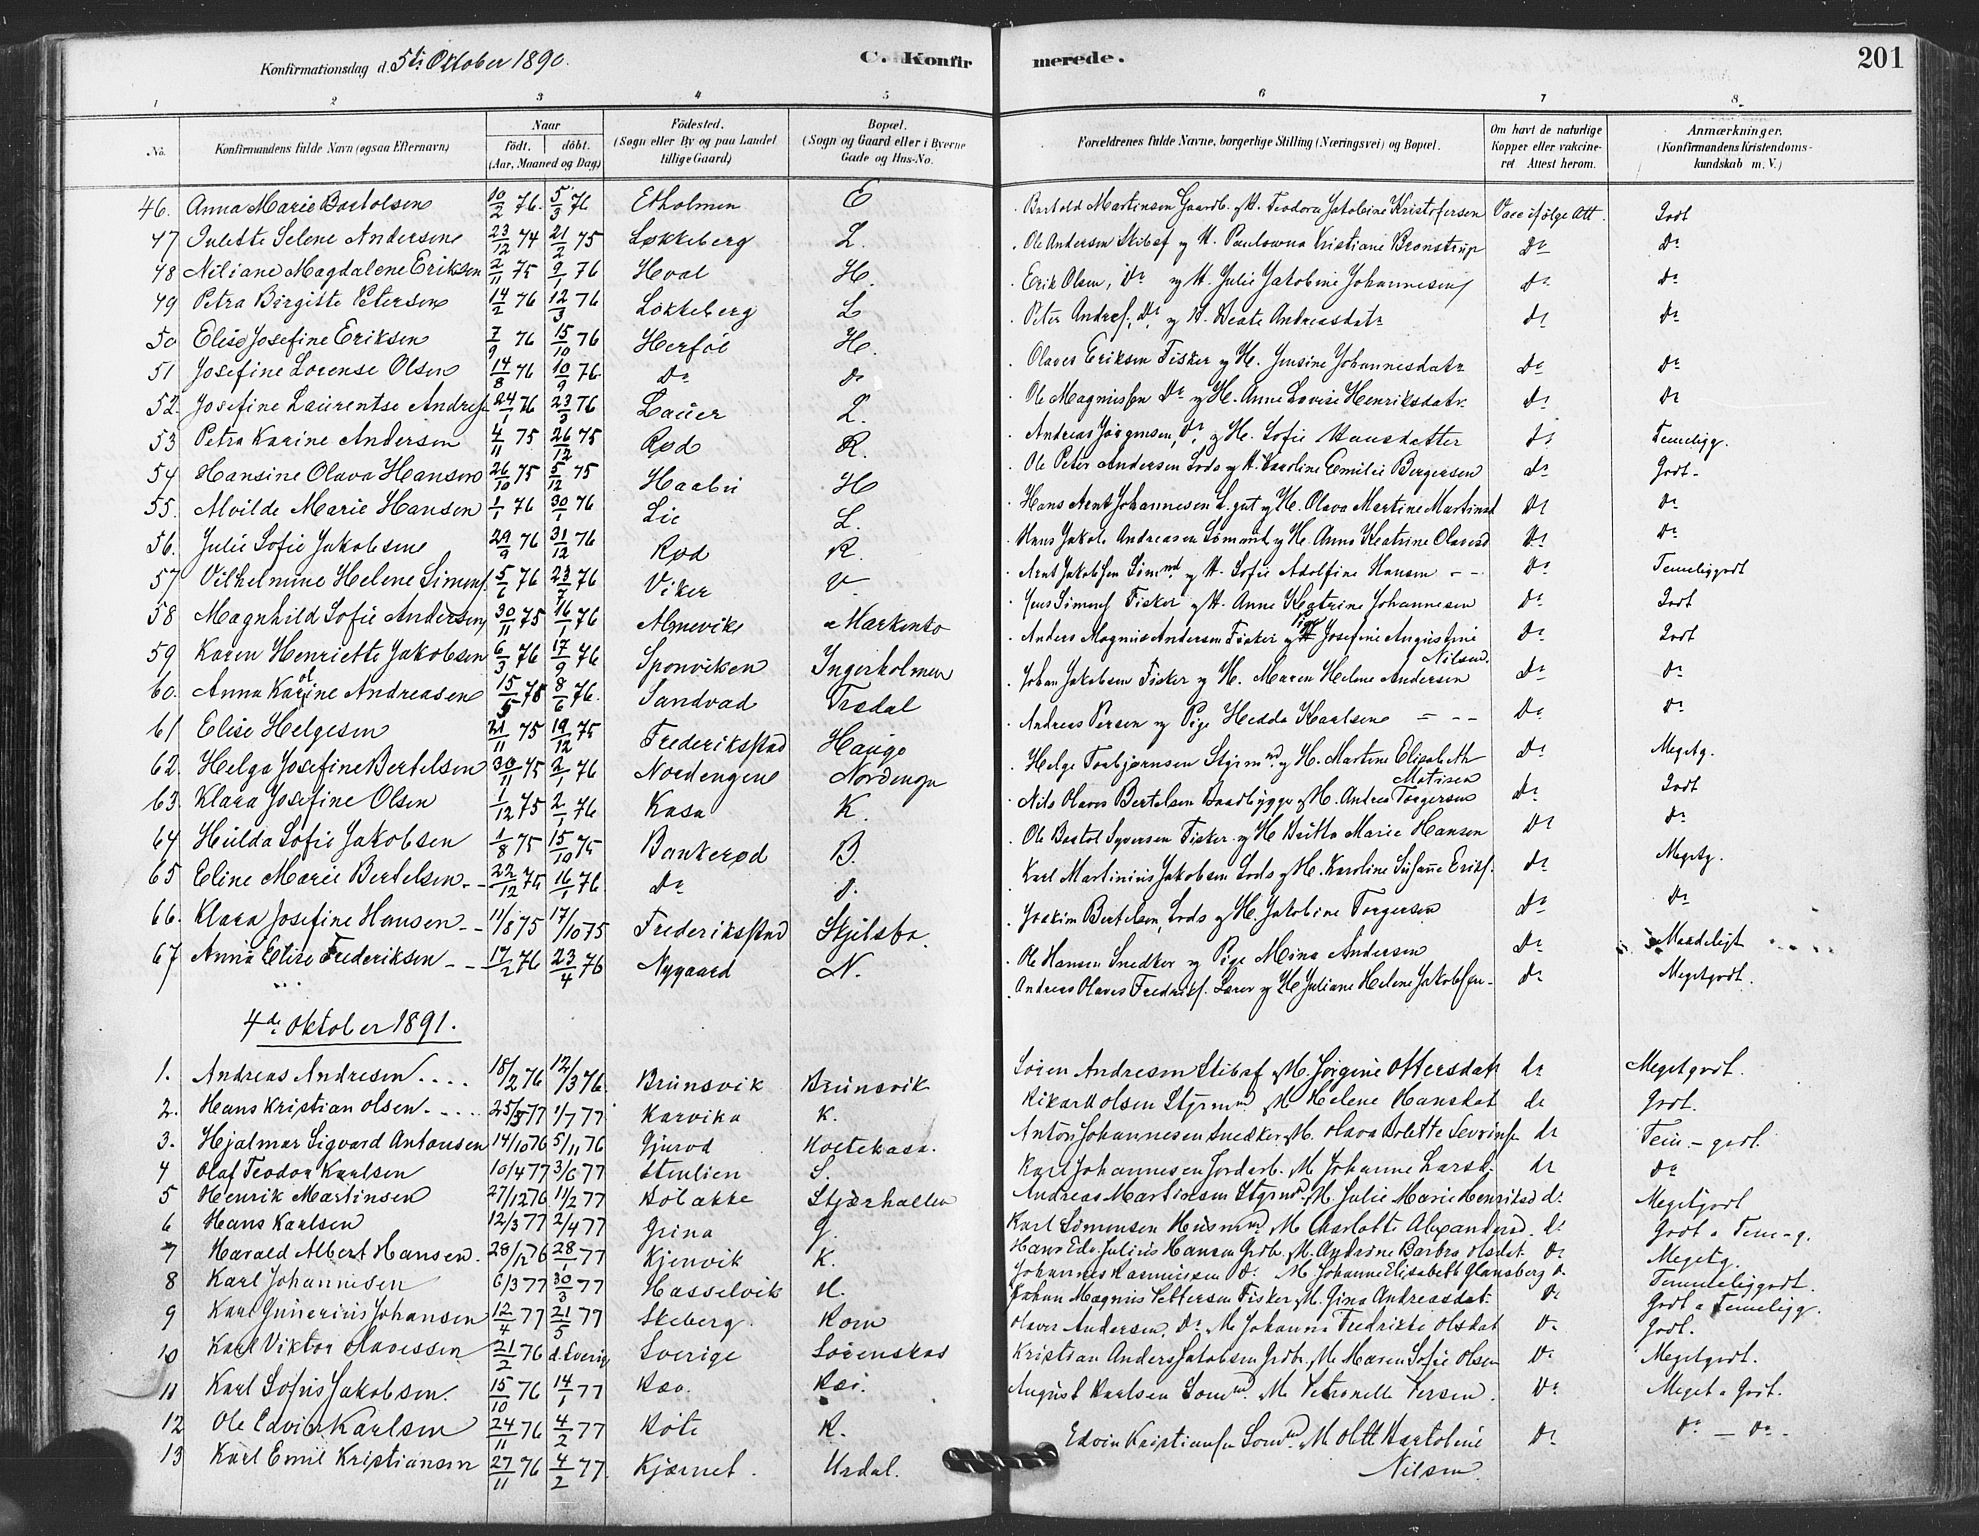 Konfirmationsdag d. 5te Oktober 1890. C. Konfirmerede. 201
1 2 3 4 5 6 7 8
No. Konfirmandens fulde Navn (ogsaa Efternavn) Naar födt. döbt. (Aar, Maaned og Dag) Födested. (Sogn eller By og paa Landet tillige Gaard) Bopæl. (Sogn og Gaard eller i Byerne Gade og Hus-No. Forældrenes fulde Navne, borgerlige Stilling (Næringsvei) og Bopæl. Om havt de naturlige Kopper eller vakcineret Attest herom. Anmærkninger. (Konfirmandens Kristendomskundskab m. V.)
46. Anna Marie Bartolsen 10/2 76. 5/3 76 Etholmen E Bartold Martinsen Gaardb. og H. Teodora Jakobine Kristofersen Vacc ifølge Att. Godt
47 Julette Selene Andersen 23/12 74 21/2 75 Løkkeberg L. Ole Andersen Skibsf og H. Paulowna Kristiane Bronstrup Do Do
48 Niliane Magdalene Eriksen 2/11 75 9/1 76 Hval H. Erik Olsen, Do og H. Julie Jakobine Johannesen Do Do
49 Petra Birgitte Petersen 14/2 76 12/3 76 Løkkeberg L Peter Andref, Do, og H. Beate Andreasdatr Do Do
50 Elise Josefine Eriksen 7/9 76 15/10 76 Herføl H. Olaves Eriksen Fisker og H. Jensine Johannesdatr Do Do
51 Josefine Lorense Olsen 14/8 76 10/9 76 Do Do Ole Magnussen Do og H. Anne Lovise Henriksdatr. Do Do
52. Josefine Laurentse Andref 24/1 76 23/3 76 Lauer L. Andreas Jørgensen, Do, og H. Sofie Hansdatter Do Do
53 Petra Karine Andersen 4/11 75 26/12 75 Rød R. Ole Peter Andersen Lods og H. Karoline Emilie Bergersen Do Temelig.
54 Hansine Olava Hansen 26/10 75 5/12 75 Haabu H Hans Arnt Johannesen L.gut og H. Olava Martine Martinsd Do Godt
55. Alvilde Marie Hansen 1/1 76 30/1 76 Lie L. Hans Jakob Andreasen Sømand og H. Anna Katrine Olavesd Do Do
56. Julie Sofie Jakobsen 29/9 76 31/12 76 Rød R. Arnt Jakobsen Sømnd. og H. Sofie Adolfine Hansen Do Do
57 Vilhelmine Helene Simensf. 5/6 76 23/7 76 Viker V. Jens Simensf Fisker og H. Anne Katrine Johannesen Do Temeliggodt
58 Magnhild Sofie Andersen 30/11 75 16/1 76 Anders Magnus Andersen Fisker og H Josefine Augustine Nilsen. Do Godt
59 Karen Henriette Jakobsen 6/3 76 17/9 76 Sponviken Ingerholmen Johan Jakobsen Fisker og H. Maren Helene Andersen Do Godt
60. Anna Karine Andreasen 15/5 75 8/6 76. Sandvad Trødal Andreas Persen og Pige Hedda Karlsen Do Do
61 Elise Helgesen 21/11 75 19/12 75 Frederiksstad Hauge Helge Torbjørnsen Styrmnd. og H. Martine Elisabeth Do Do
62. Helga Josefine Bertelsen 30/11 75 2/1 76 Nordengene Nordengn Nils Olaves Bertelsen Baadbygge og H. Andrea Torgersen Do Megetg.
63. Klara Josefine Olsen 1/12 75 2/1 76 Kasa K. Ole Bartol Syversen Fisker og H Britta Marie Hansen Do Godt
64 Hulda Sofie Jakobsen 1/8 75 15/10 75 Bankerød B. Karl Martinius Jakobsen Lods og H. Karoline Susanne Eriksf. Do Do
65 Eline Marie Bertelsen 22/12 75 16/1 76. Do D. Joakim Bertelsen, Lods og H. Jakobine Torgersen Do Megetg.
66. Klara Josefine Hansen 11/8 75 17/10 75 Frederiksstad Skjelsbo. Ole Hansen Snedker og Pige Mina Andersen Do Maadeligt
67 Anna Elise Frederiksen 17/2 76 23/4 76 Nygaard N. Andreas Olaves Fredriksf. Lærer og H Juliane Helene Jakobsen Do Megetgodt.
4de Oktober 1891.
1. Andreas Andresen 18/2 76 12/3 76. Brunsvik Brunsvik Søren Andresen Skibsf og H. Jørgine Ottersdatr Do Megetgodt.
2. Hans Kristian Olsen 1/7 77 Karvika K. Rikard Olsen Styrmnd og H Helene Hansdat Do Godt.
3. Hjalmar Sigvard Antonsen 14/10 76 5/11 76 Gjurød Holtekasa. Anton Johannesen Snedker og H. Olava Bolette Sevrinsf Do Tem-godt.
4 Olaf Teodor Karlsen 10/4 77 3/6 77 Stenlien S. Karl Johannesen Jordarb. H Johanne Larsd. Do Do
5 Henrik Martinsen 27/12 76 11/2 77 Bølakke Stjærhallen Andreas Martinsen Styrmnd. H. Julie Marie Henriksd Do Megetgodt
6 Hans Karlsen 12/3 77 2/4 77 Grina G. Karl Simensen Husmnd H Charlotte Alexandersd. Do Godt a Tem-g.
7 Harald Albert Hansen. 28/12 76 28/1 77 Kjenvik K. Hans Edv. Julius Hansen Grdb. H. Andrine Barbro Olsdat Do Megetg.
8 Karl Johannesen 6/3 77 30/3 77 Hasselvik H. Johannes Rasmussen Do H Johanne Elisabeth Glansberg Do Temmeliggodt.
9 Karl Gunerius Johansen 12/4 77 21/5 77 Skeberg. Kom Johan Magnus Pettersen Fisker H. Gina Andreasdat. Do Godt a Temelig.
10 Karl Viktor Olavessen 21/2 76 d. Sverig Sverige Sørenskas Olaver Andersen, Do H Johanna Fredrikke Olsdat Do Godt.
11 Karl Sofus Jakobsen. 15/10 76 14/1 77 Kristian Anders Jakobsen Grdb. H. Maren Sofie Olsen Do Megetgodt.
12 Ole Edvin Karlsen 24/11 76 4/2 77 R. August Karlsen Sømd. H Petronelle Persen. Do Meget a Godt.
13 Karl Emil Kristiansen 27/11 76 4/2 77. Kjærnet. Urdal. Edvin Kristiansen Sømd. H Olette Bartoline Nilsen. Do Do - Do.